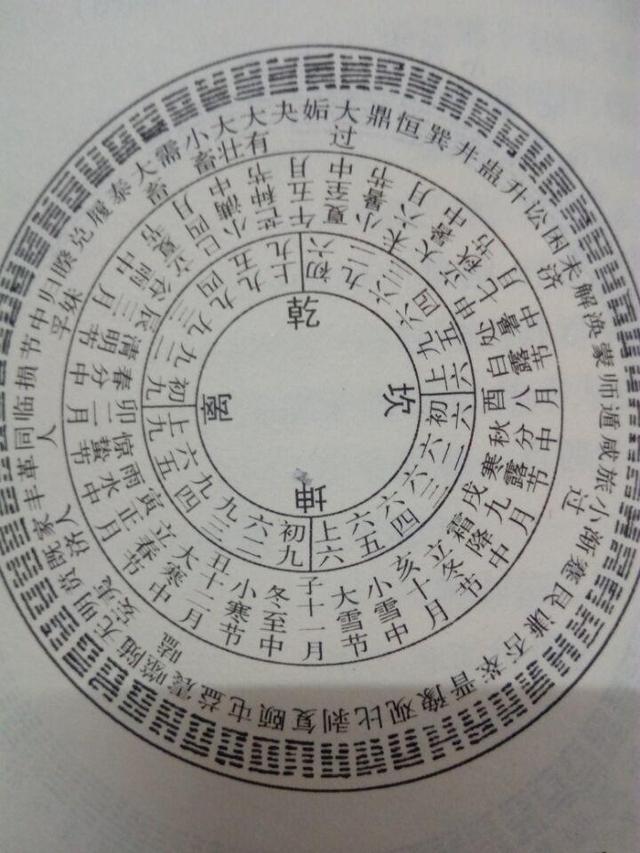 姤 大过 鼎 恒 巽 井 蛊 升 讼 困 未济 解 涣 蒙 师 遁 咸 旅 小过 渐 蹇 艮 谦 否 萃 晋 豫 观 比 剥 复 颐 屯 益 震 噬嗑 随 无妄 明夷 贲 既济 家人 丰 革 同人 临 损 节 中孚 归妹 睽 兑 履 泰 大畜 需 小畜 大壮 大有 夬
午五月 夏至中 小暑节 未六月 大暑中 立秋节 申七月 处暑中 白露节 酉八月 秋分中 寒露节 戌九月 霜降中 立冬节 亥十月 小雪中 大雪节 子十一月 冬至中 小寒节 丑十二月 大寒中 立春节 寅正月 雨水中 惊蛰节 卯二月 春分中 清明节 辰三月 谷雨中 立夏节 巳四月 小满中 芒种节
初六 九二 六三 六四 九五 上六
初六 六二 六三 六四 六五 上六
初九 六二 九三 九四 九五 上九
初九 九二 九三 九四 九五 上九
坎
坤